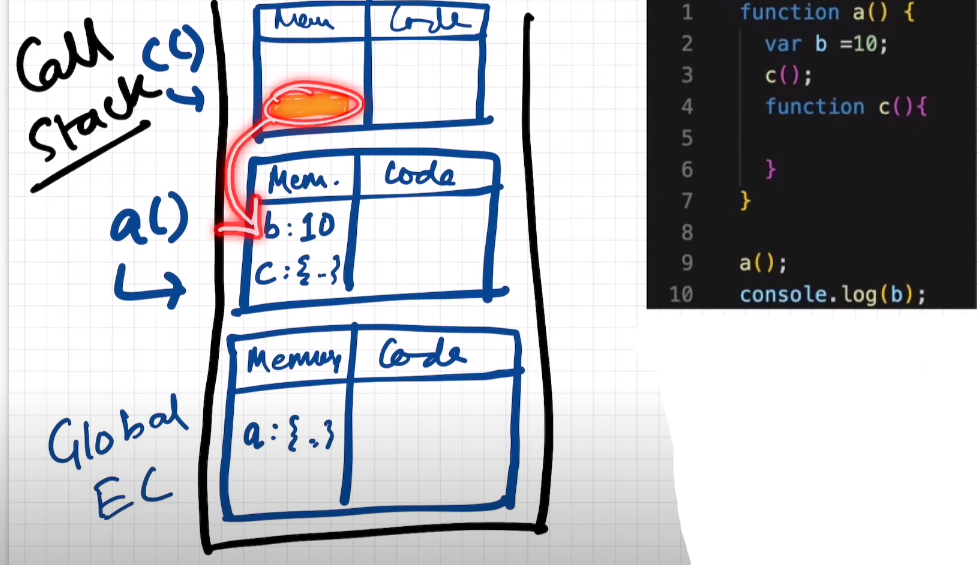 Call
Stack
c()
Mem
Code
a()
Mem.
Code
b:10
c:{-}
Global
EC
Memory
Code
a:{.}
1 function a() {
2 var b =10;
3 c();
4 function c(){
5
6 }
7 }
8
9 a();
10 console.log(b);